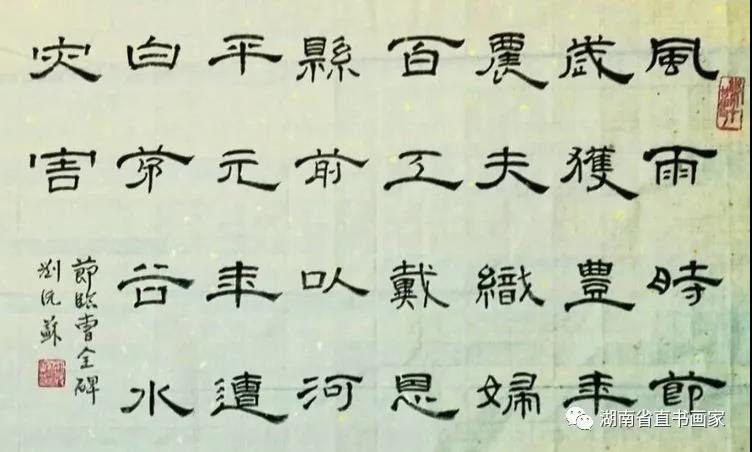 風雨時節
歲獲豐年
農夫織婦
百工戴恩
縣前以河
平元年遭
白茅谷水
灾害
節臨曹全碑
劉沅蘇
湖南省直书画家